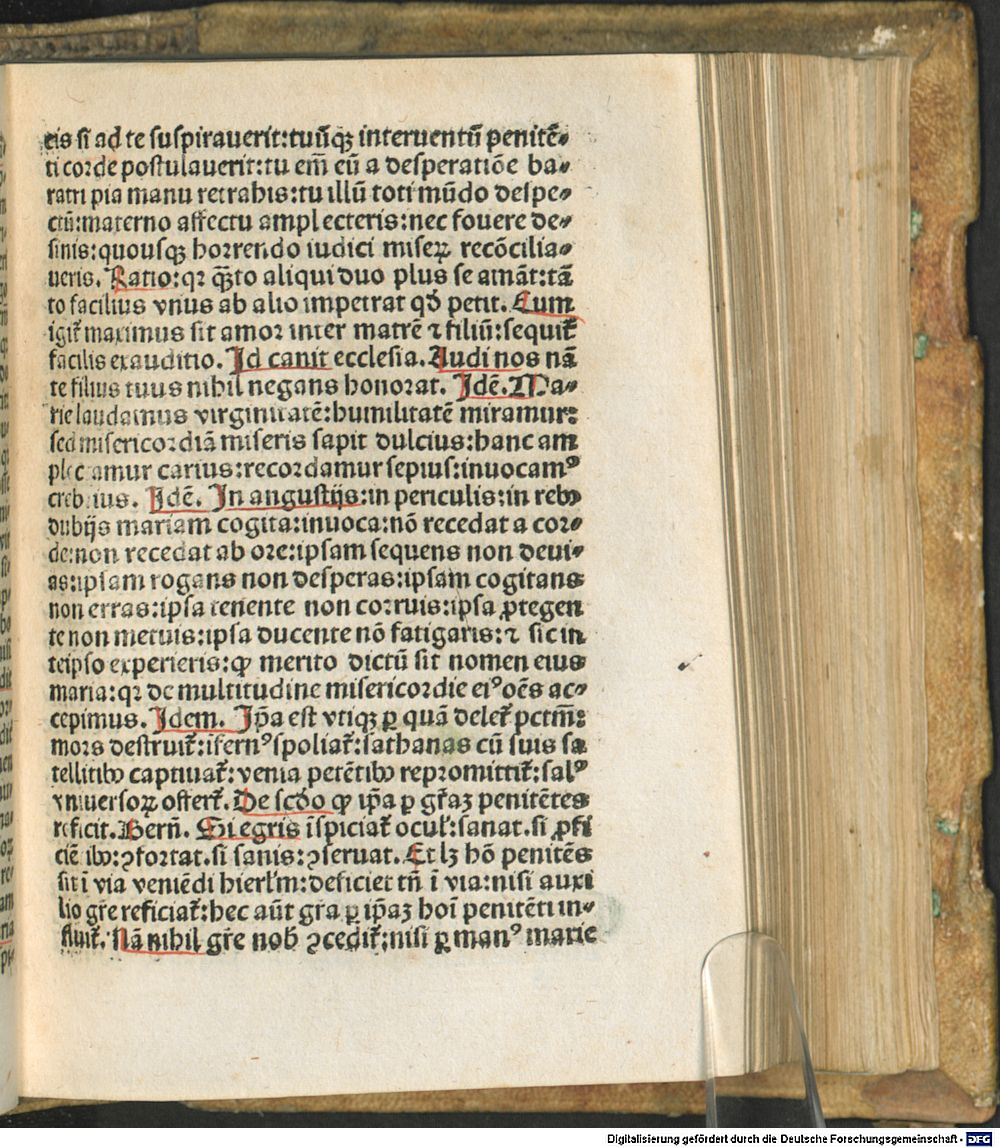 cis si ad te suspirauerit:tuūqꝫ interuentū penitē⸗
ti corde postulauerit:tu em̄ eū a desperatiōe ba⸗
ratri pia manu retrahis:tu illū toti mūdo despe⸗
ctū:materno affectu amplecteris:nec fouere de⸗
sinis:quousqꝫ horrendo iudici miseꝝ recōcilia⸗
ueris. Ratio:qꝛ qͣ̄to aliqui duo plus se amāt:tā
to facilius vnus ab alio impetrat qd̄ petit. Cum
igit᷑ maximus sit amor inter matrē ⁊ filiū:sequit᷑
facilis exauditio. Id canit ecclesia. Audi nos nā
te filius tuus nihil negans honorat. Idē. Ma⸗
rie laudamus virginitatē:humilitatē miramur:
sed misericordiā miseris sapit dulcius:hanc am
plectamur carius:recordamur sepius:inuocamꝰ
crebrius. Idē. In angustijs:in periculis:in rebꝰ
dubijs mariam cogita:inuoca:nō recedat a cor⸗
de:non recedat ab ore:ipsam sequens non deui⸗
as:ipsam rogans non desperas:ipsam cogitans
non erras:ipsa tenente non corruis:ipsa ꝓtegen
te non metuis:ipsa ducente nō fatigaris:⁊ sic in
teipso experieris:ꝙ merito dictū sit nomen eius
maria:qꝛ de multitudine misericordie eiꝰ oēs ac⸗
cepimus. Idem. Ip̄a est vtiqꝫ ꝑ quā delet᷑ pctm̄:
mors destruit᷑:īfernꝰ spoliat᷑:sathanas cū suis sa
tellitibꝰ captiuat᷑:venia petētibꝰ repromittit᷑:salꝰ
vniuersoꝝ offert᷑. De scd̄o ꝙ ip̄a ꝑ gr̄aꝫ penitētes
reficit. Bern̄. Si egris īspiciat᷑ ocul᷑:sanat.si ꝓfi
ciē ibꝰ:ꝯfortat.si sanis:ꝯseruat. Et lꝫ hō penitēs
sit ī via veniēdi hierl᷑m:deficiet tn̄ ī via:nisi auxi
lio gr̄e reficiat᷑:hec aūt gr̄a ꝑ ip̄aꝫ hoī penitēti in⸗
fluit᷑. Nā nihil gr̄e nob̄ ꝯcedit᷑:nisi ꝑ manꝰ marie
Digitalisierung gefördert durch die Deutsche Forschungsgemeinschaft - DFG